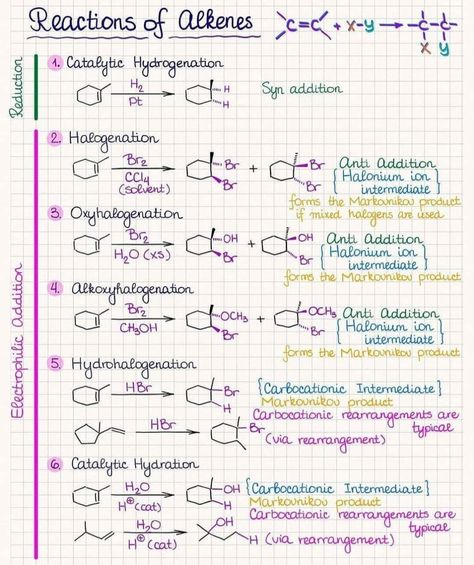 Reactions of Alkenes
C=C + X-Y → C-C
X Y
Reduction
1. Catalytic Hydrogenation
H2
Pt
H
H
Syn addition
Electrophilic Addition
2. Halogenation
Br2
CCl4
(solvent)
Br
Br
+
Br
Br
Anti Addition
{Halonium ion
intermediate}
forms the Markovnikov product
if mixed halogens are used
3. Oxyhalogenation
Br2
H2O (xs)
OH
Br
+
OH
Br
Anti Addition
{Halonium ion
intermediate}
forms the Markovnikov product
4. Alkoxyhalogenation
Br2
CH3OH
OCH3
Br
+
OCH3
Br
Anti Addition
{Halonium ion
intermediate}
forms the Markovnikov product
5. Hydrohalogenation
HBr
Br
H
{Carbocationic Intermediate}
Markovnikov product
Carbocationic rearrangements are
typical
HBr
Br
(via rearrangement)
6. Catalytic Hydration
H2O
H⊕(cat)
OH
H
{Carbocationic Intermediate}
Markovnikov product
Carbocationic rearrangements are
typical
H2O
H⊕(cat)
OH
H
(via rearrangement)